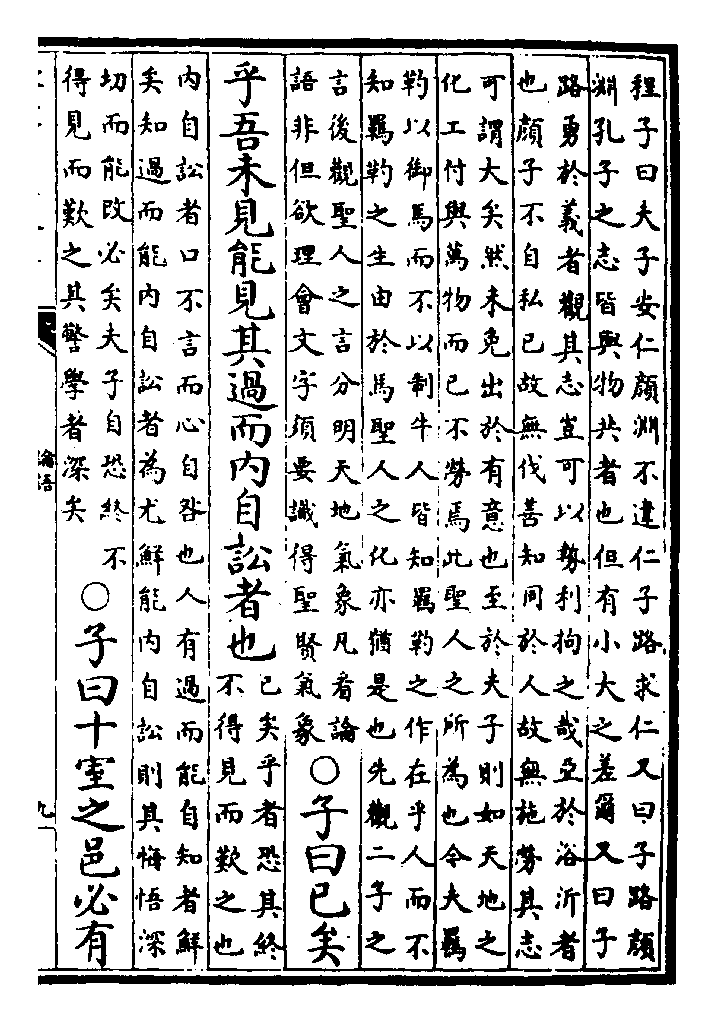 程子曰夫子安仁顔淵不違仁子路求仁又曰子路顔
淵孔子之志皆與物共者也但有小大之差爾又曰子
路勇於義者觀其志豈可以勢利拘之哉亞於浴沂者
也顔子不自私已故無伐善知同於人故無施勞其志
可謂大矣然未免出於有意也至於夫子則如天地之
化工付與萬物而已不勞焉此聖人之所為也今夫羈
靮以御馬而不以制牛人皆知羈靮之作在乎人而不
知羈靮之生由於馬聖人之化亦猶是也先觀二子之
言後觀聖人之言分明天地氣象凡看論
語非但欲理會文字須要識得聖賢氣象
○子曰已矣
乎吾未見能見其過而内自訟者也
已矣乎者恐其終
不得見而歎之也
内自訟者口不言而心自咎也人有過而能自知者鮮
矣知過而能内自訟者為尤鮮能内自訟則其悔悟深
切而能改必矣夫子自恐終不
得見而歎之其警學者深矣
○子曰十室之邑必有
論語
九